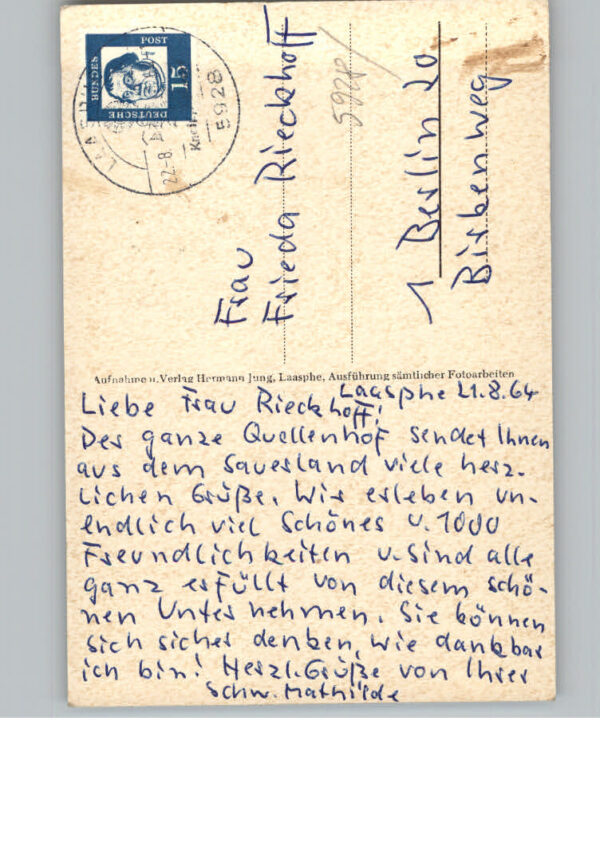 DEUTSCHE
BUNDES
POST
15
LAASPHE
22-8.
5928
5928/
Frau
Frieda Rieckhoff
1 Berlin 20
Birkenweg
Aufnahme u. Verlag Hermann Jung, Laasphe, Ausführung sämtlicher Fotoarbeiten
Laasphe 21.8.64
Liebe Frau Rieckhoff!
Der ganze Quellenhof sendet Ihnen
aus dem Sauerland viele herz-
lichen Grüße. Wir erleben un-
endlich viel Schönes u. 1000
Freundlichkeiten u. sind alle
ganz erfüllt von diesem schö-
nen Unternehmen. Sie können
sich sicher denken, wie dankbar
ich bin! Herzl. Grüße von Ihrer
Schw. Mathilde